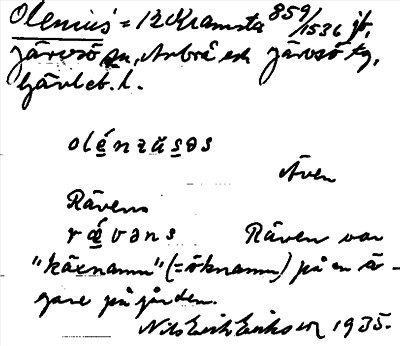 Olenius = 12 Kramsta 859/1536 jb,
Järvsö sn, Arbrå och Järvsö tg,
Gävleb. l.
olénzúsəs
Även
Rävens
rǽvəns Räven var
"käcnamn" (= öknamn) på en ä-
gare på gården.
Nils Erik Eriksson 1935.